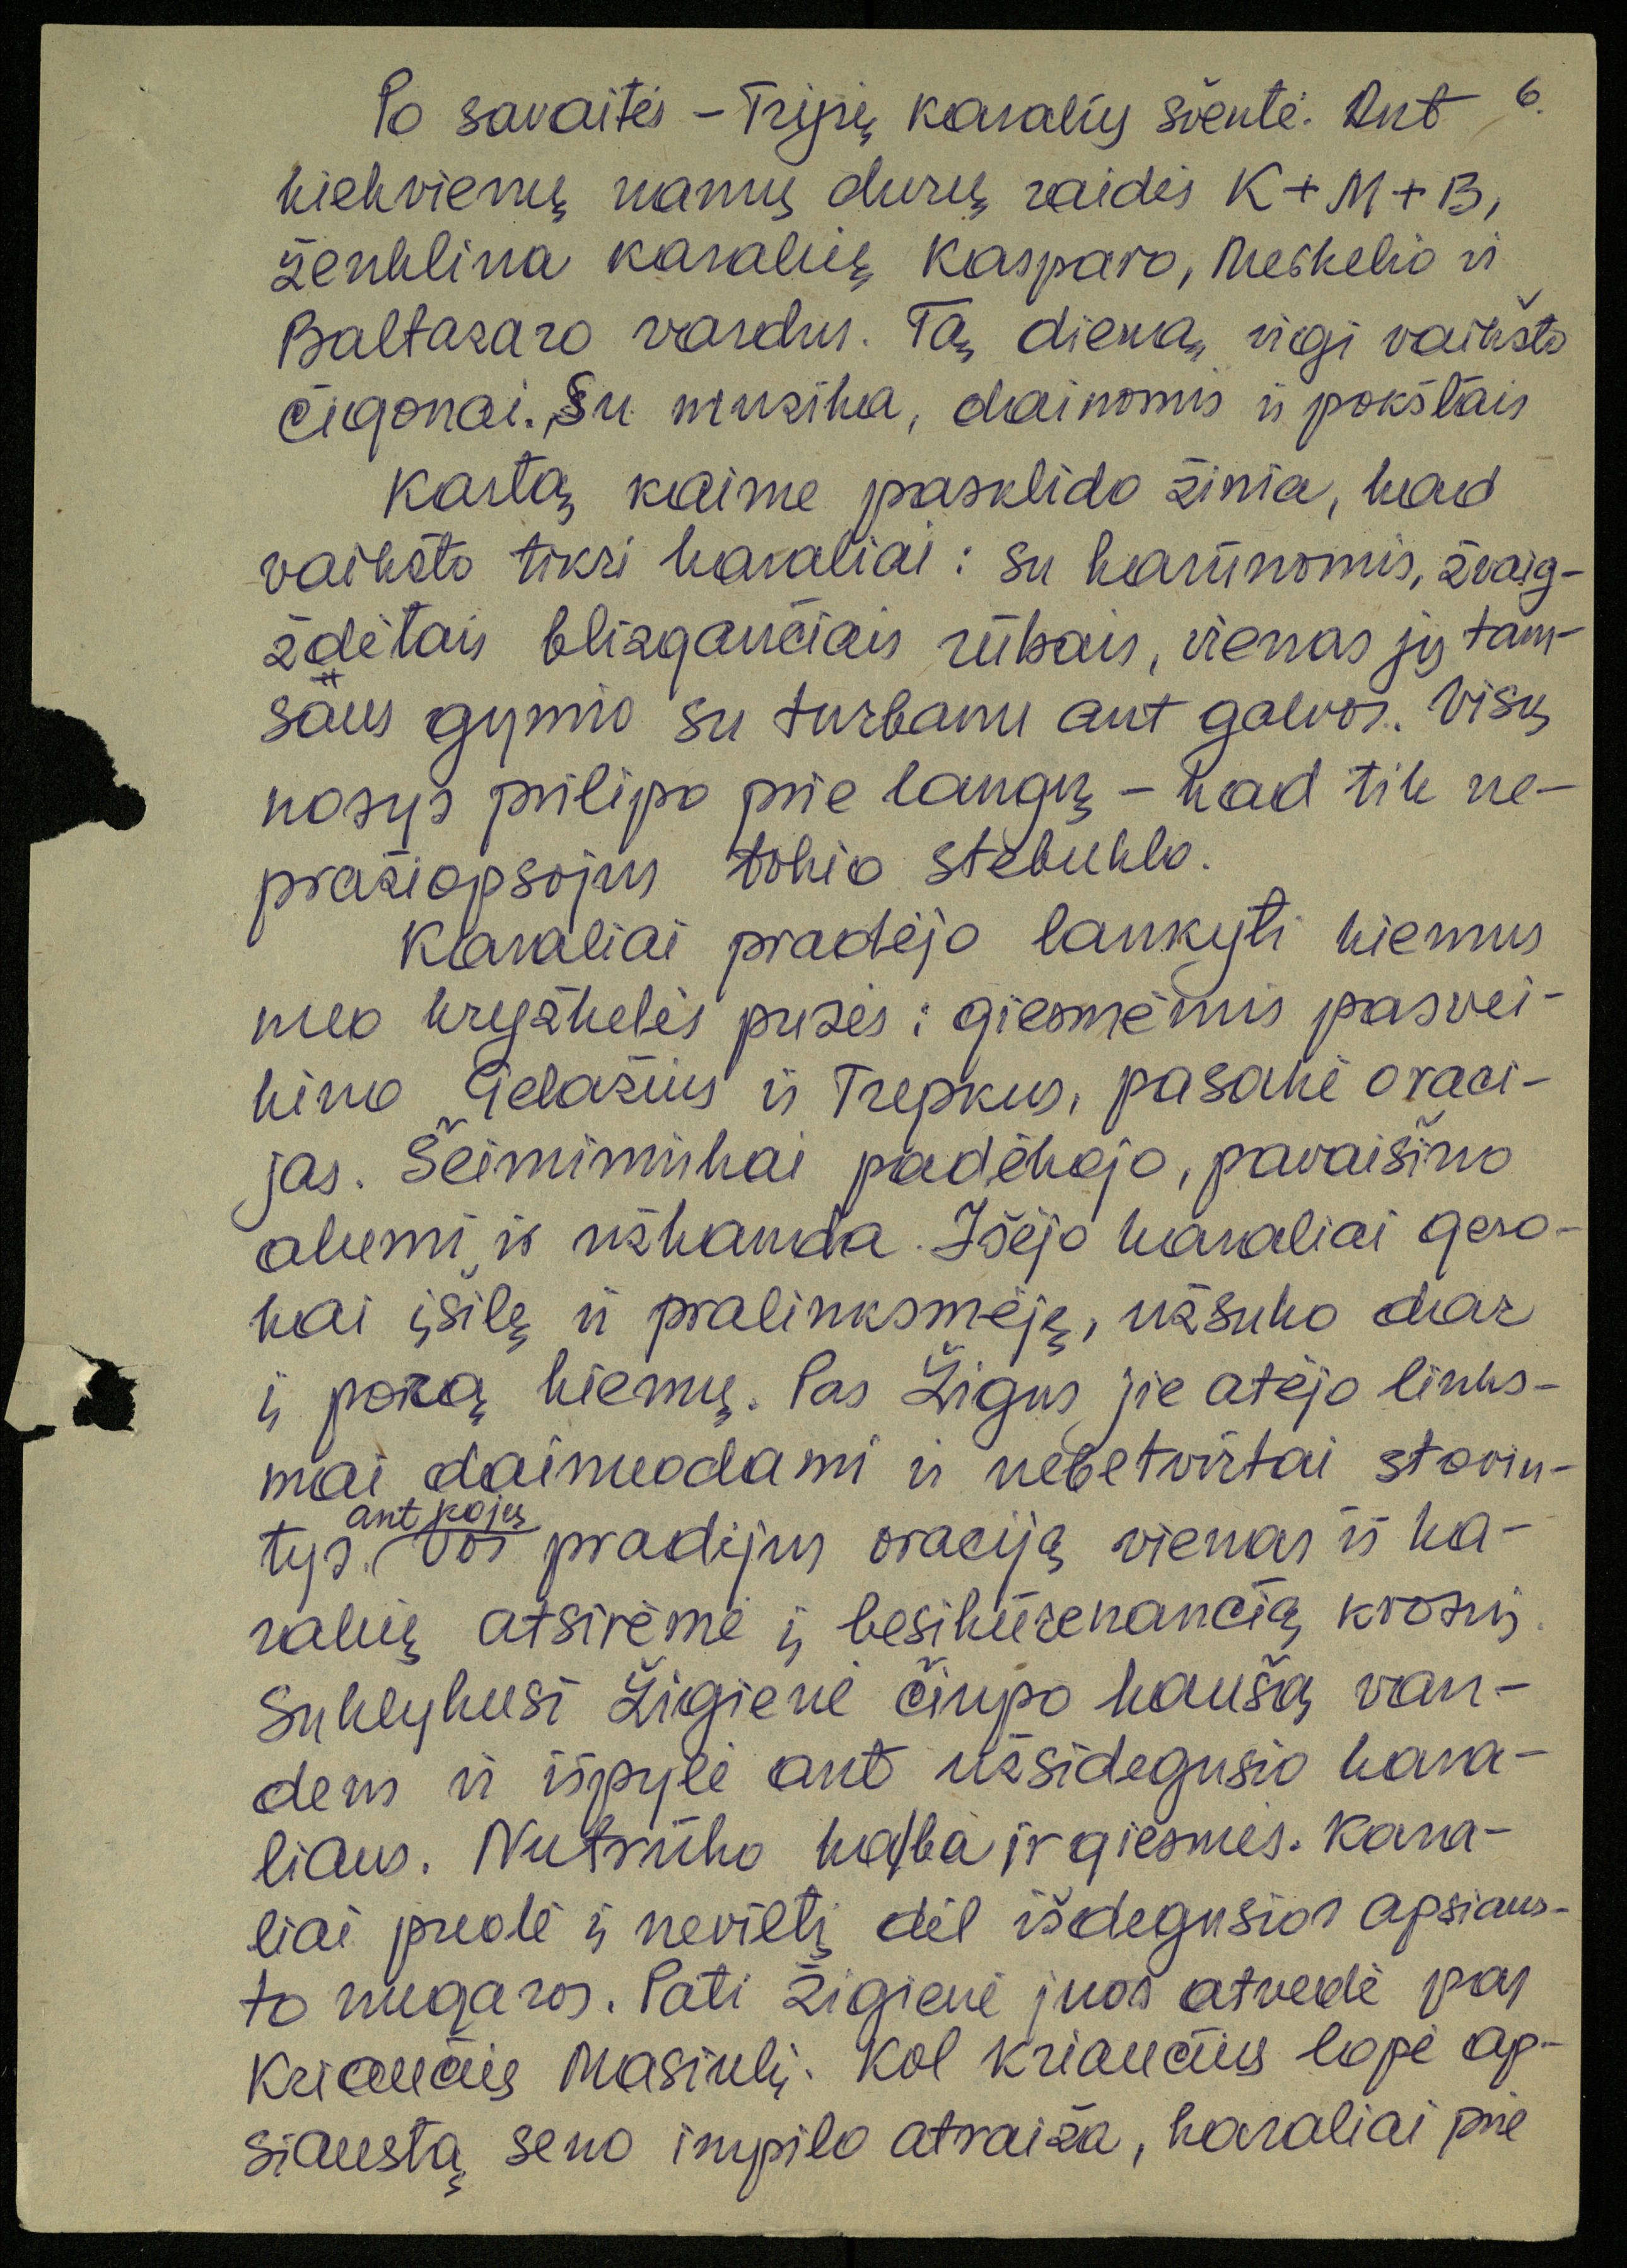 Po savaitės – Trijų karalių šventė. Ant 6.
kiekvienų namų durų raidės K+M+B,
ženklina karalių Kasparo, Merkelio ir
Baltazaro vardus. Tą dieną irgi vaikšto
čigonai. Su muzika, dainomis ir pokštais
Kartą kaime pasklido žinia, kad
vaikšto tikri karaliai: su karūnomis, žvaig-
ždėtais blizgančiais rūbais, vienas jų tam-
saus gymio su turbanu ant galvos. Visų
nosys prilipo prie langų – kad tik ne-
pražiopsojus tokio stebuklo.
Karaliai pradėjo lankyti kiemus
nuo kryžkelės pusės: giesmėmis pasvei-
kino Gelažius ir Trepkus, pasakė oraci-
jas. Šeimininkai padėkojo, pavaišino
alumi ir užkanda. Išėjo karaliai gero-
kai įšilę ir pralinksmėję, užsuko dar
į porą kiemų. Pas Žigus jie atėjo links-
mai dainuodami ir nebetvirtai stovin-
tys ant kojų. Vos pradėjus oraciją vienas iš ka-
ralių atsirėmė į besikūrenančią krosnį.
Suklykusi Žigienė čiupo kaušą van-
dens ir išpylė ant užsidegusio kara-
liaus. Nutrūko kalba ir giesmės. Kara-
liai puolė į neviltį dėl išdegusios apsiaus-
to nugaros. Pati Žigienė juos atvedė pas
Kriaučių Masiulį. Kol kriaučius lopė ap-
siaustą seno impilo atraiža, karaliai prie